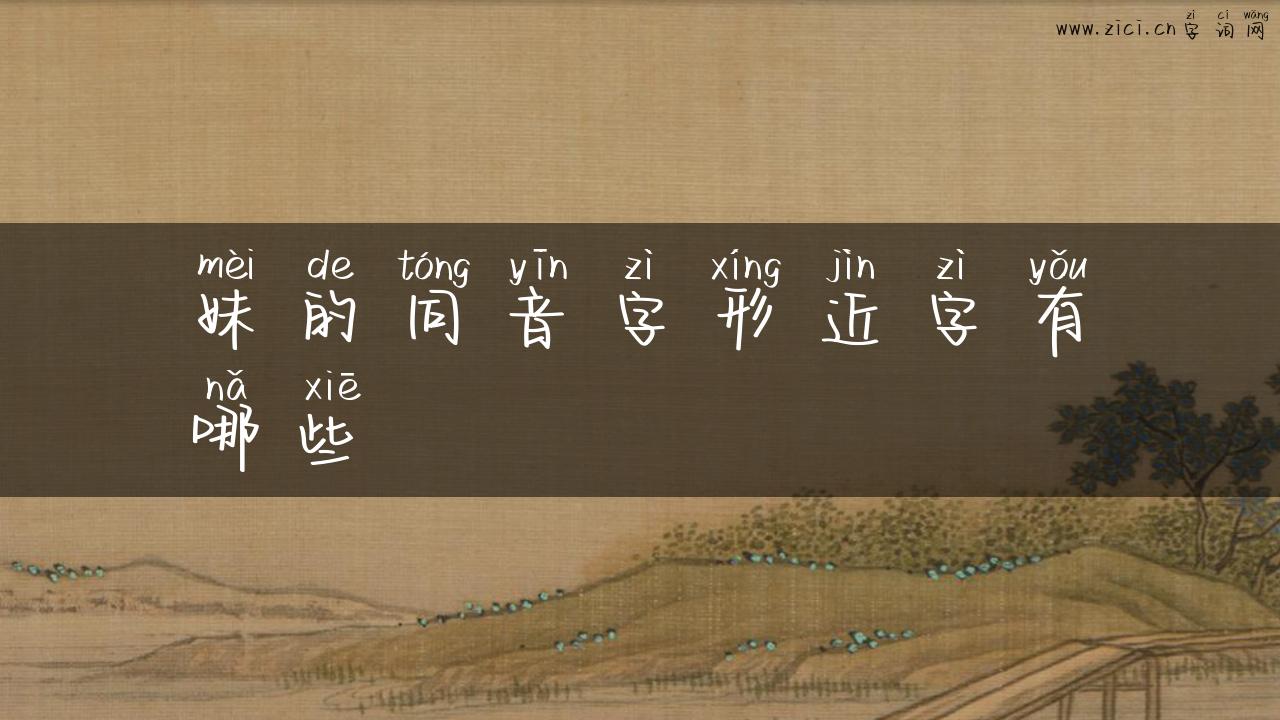 zì cí wǎng
www.zici.cn 字 词 网
mèi de tóng yīn zì xíng jìn zì yǒu
妹 的 同 音 字 形 近 字 有
nǎ xiē
哪 些